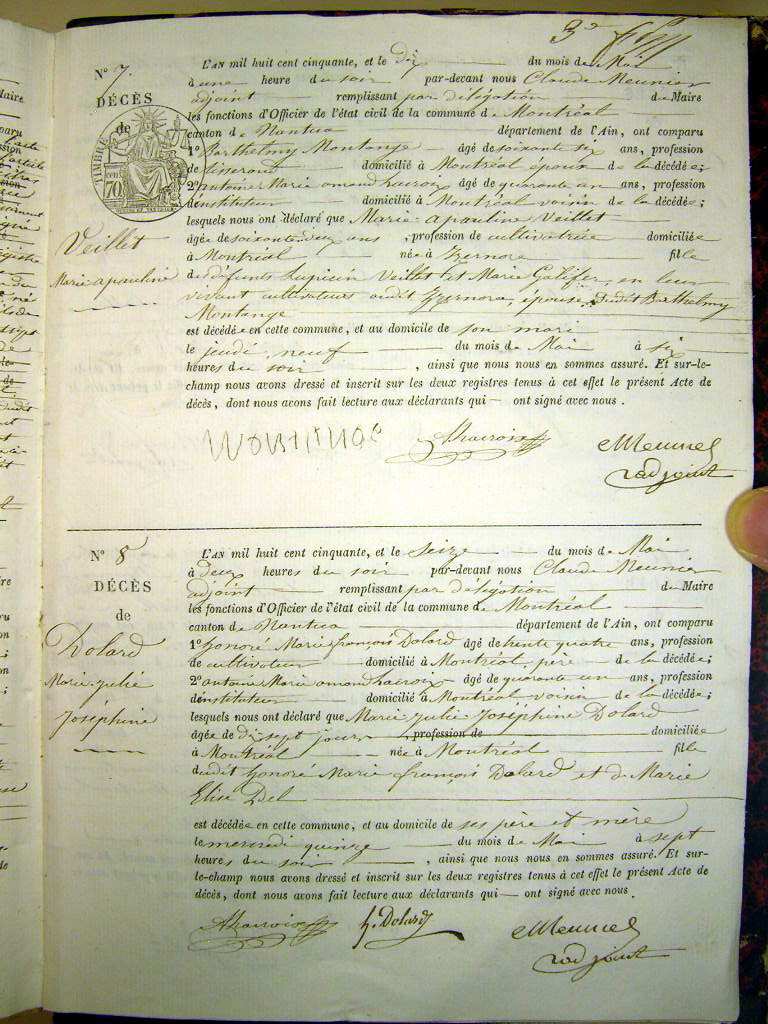 N° 7.
DÉCÈS
de
TIMBRE
70
Veillet
Marie apauline
L'AN mil huit cent cinquante, et le Dix du mois de Mai
à une heure du soir par-devant nous Claude Meunier
adjoint remplissant par délégation de Maire
les fonctions d'Officier de l'état civil de la commune de Montréal
canton de Nantua département de l'Ain, ont comparu
1° Barthelmy Montange âgé de soixante six ans, profession
de tisserand domicilié à Montréal époux de la décédée;
2° antoine Marie amand Lacroix âgé de quarante un ans, profession
d'instituteur domicilié à Montréal voisin de la décédée;
lesquels nous ont déclaré que Marie apauline Veillet
âgée de soixante deux ans, profession de cultivatrice domiciliée
à Montréal née à Izernore fille
de défunts Lupicin Veillet et Marie Galifer, en leur
vivant cultivateurs audit Izernore, épouse dudit Barthelmy
Montange
est décédée en cette commune, et au domicile de son mari
le jeudi neuf du mois de Mai à six
heures du soir, ainsi que nous nous en sommes assuré. Et sur-le-
champ nous avons dressé et inscrit sur les deux registres tenus à cet effet le présent Acte de
décès, dont nous avons fait lecture aux déclarants qui — ont signé avec nous.
MONTANGE ALacroix CMeunier
adjoint
N° 8
DÉCÈS
de
Dolard
Marie Julie
Joséphine
L'AN mil huit cent cinquante, et le seize du mois de Mai
à deux heures du soir par-devant nous Claude Meunier
adjoint remplissant par délégation de Maire
les fonctions d'Officier de l'état civil de la commune de Montréal
canton de Nantua département de l'Ain, ont comparu
1° honoré Marie françois Dolard âgé de trente quatre ans, profession
de cultivateur domicilié à Montréal, père de la décédée;
2° antoine Marie amand Lacroix âgé de quarante un ans, profession
d'instituteur domicilié à Montréal voisin de la décédée;
lesquels nous ont déclaré que Marie Julie Joséphine Dolard
âgée de dix sept jours, profession de domiciliée
à Montréal née à Montréal fille
dudit honoré Marie françois Dolard et de Marie
Elise Del
est décédée en cette commune, et au domicile de ses père et mère
le mercredi quinze du mois de Mai à sept
heures du soir, ainsi que nous nous en sommes assuré. Et sur-
le-champ nous avons dressé et inscrit sur les deux registres tenus à cet effet le présent Acte de
décès, dont nous avons fait lecture aux déclarants qui — ont signé avec nous.
ALacroix h. Dolard CMeunier
adjoint